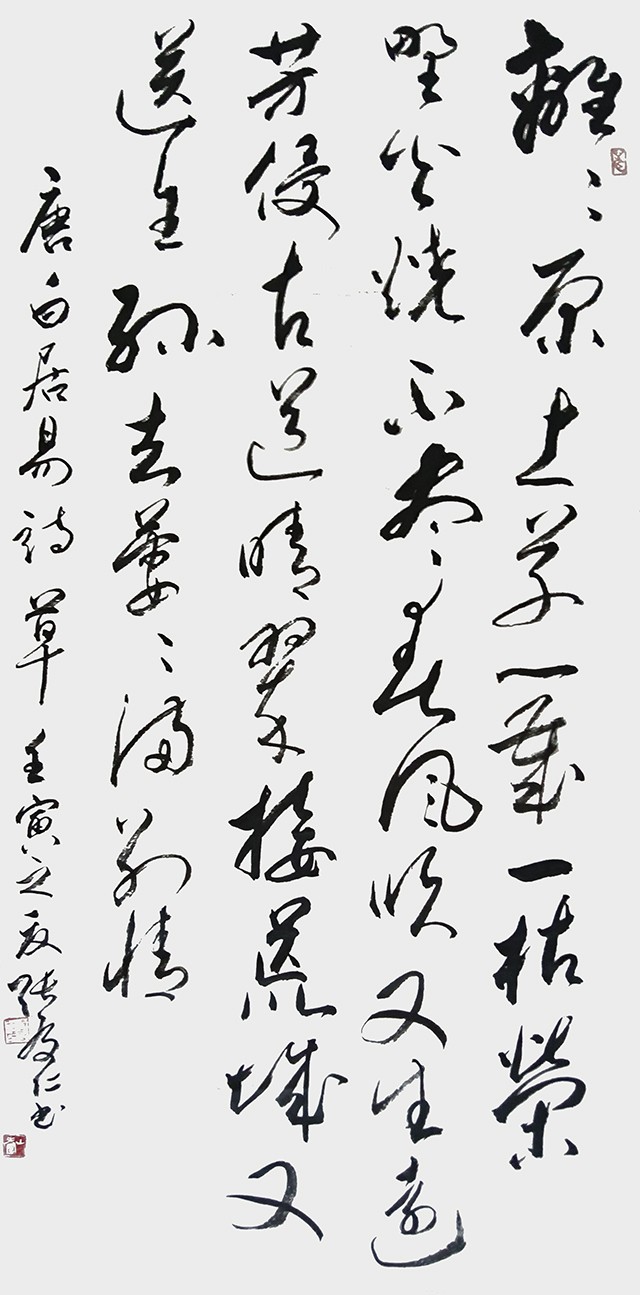 離〻原上草一歲一枯榮
野火燒不盡春風吹又生遠
芳侵古道晴翠接荒城又
送王孫去萋〻滿別情
唐白居易詩草壬寅之夏張慶仁書